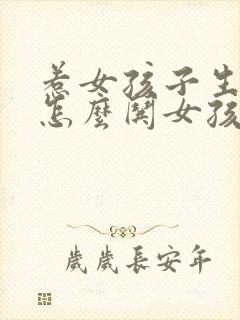 惹女孩子生
怎麼關女孩
歲歲長安年